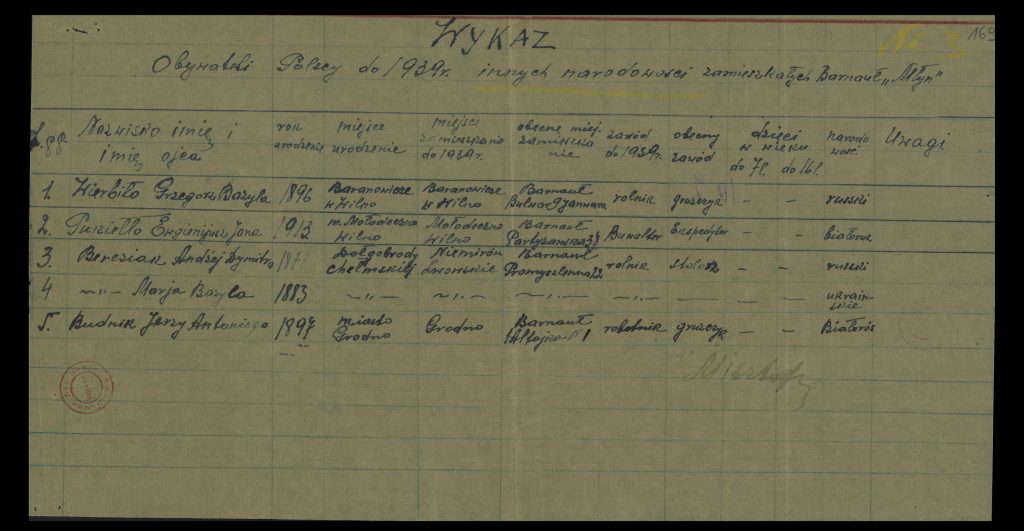 WYKAZ
Nr 2 169
Obywateli Polscy do 1939r. innych narodowości zamieszkałych Barnauł „Młyn"
L.pp. Nazwisko imię i imię ojca rok urodzenie miejsce urodzenie miejsce zamieszkanie do 1939r. obecne miej. zamieszkanie zawód do 1939r. obecny zawód dzieci w wieku do 7l. do 16l. narodowość Uwagi
1. Wierbiło Grzegorz Bazyla 1896 Baranowicze w Wilno Baranowicze w Wilno Barnauł Bulwar 9 Janwara rolnik gruzczyk – – russki
2. Puziełło Eugienijusz Jona 1913 m. Mołodeczno Wilno Mołodeczno Wilno Barnauł Partyzanska 38 Buhalter Ekspedytor – – białorus
3. Bereziak Andżej Dymitra Dołgobrody chełmskiej Niemirów Lwowskie Barnauł Promyszlenna 22 rolnik stolarz – – russki
4. –„– Marja Bazyla 1883 –„– –„– –„– –„– — – – ukrainskie
5. Budnik Jerzy Antoniego 1897 miasto Grodno Grodno Barnauł robotnik gruzczyk – – Białorós